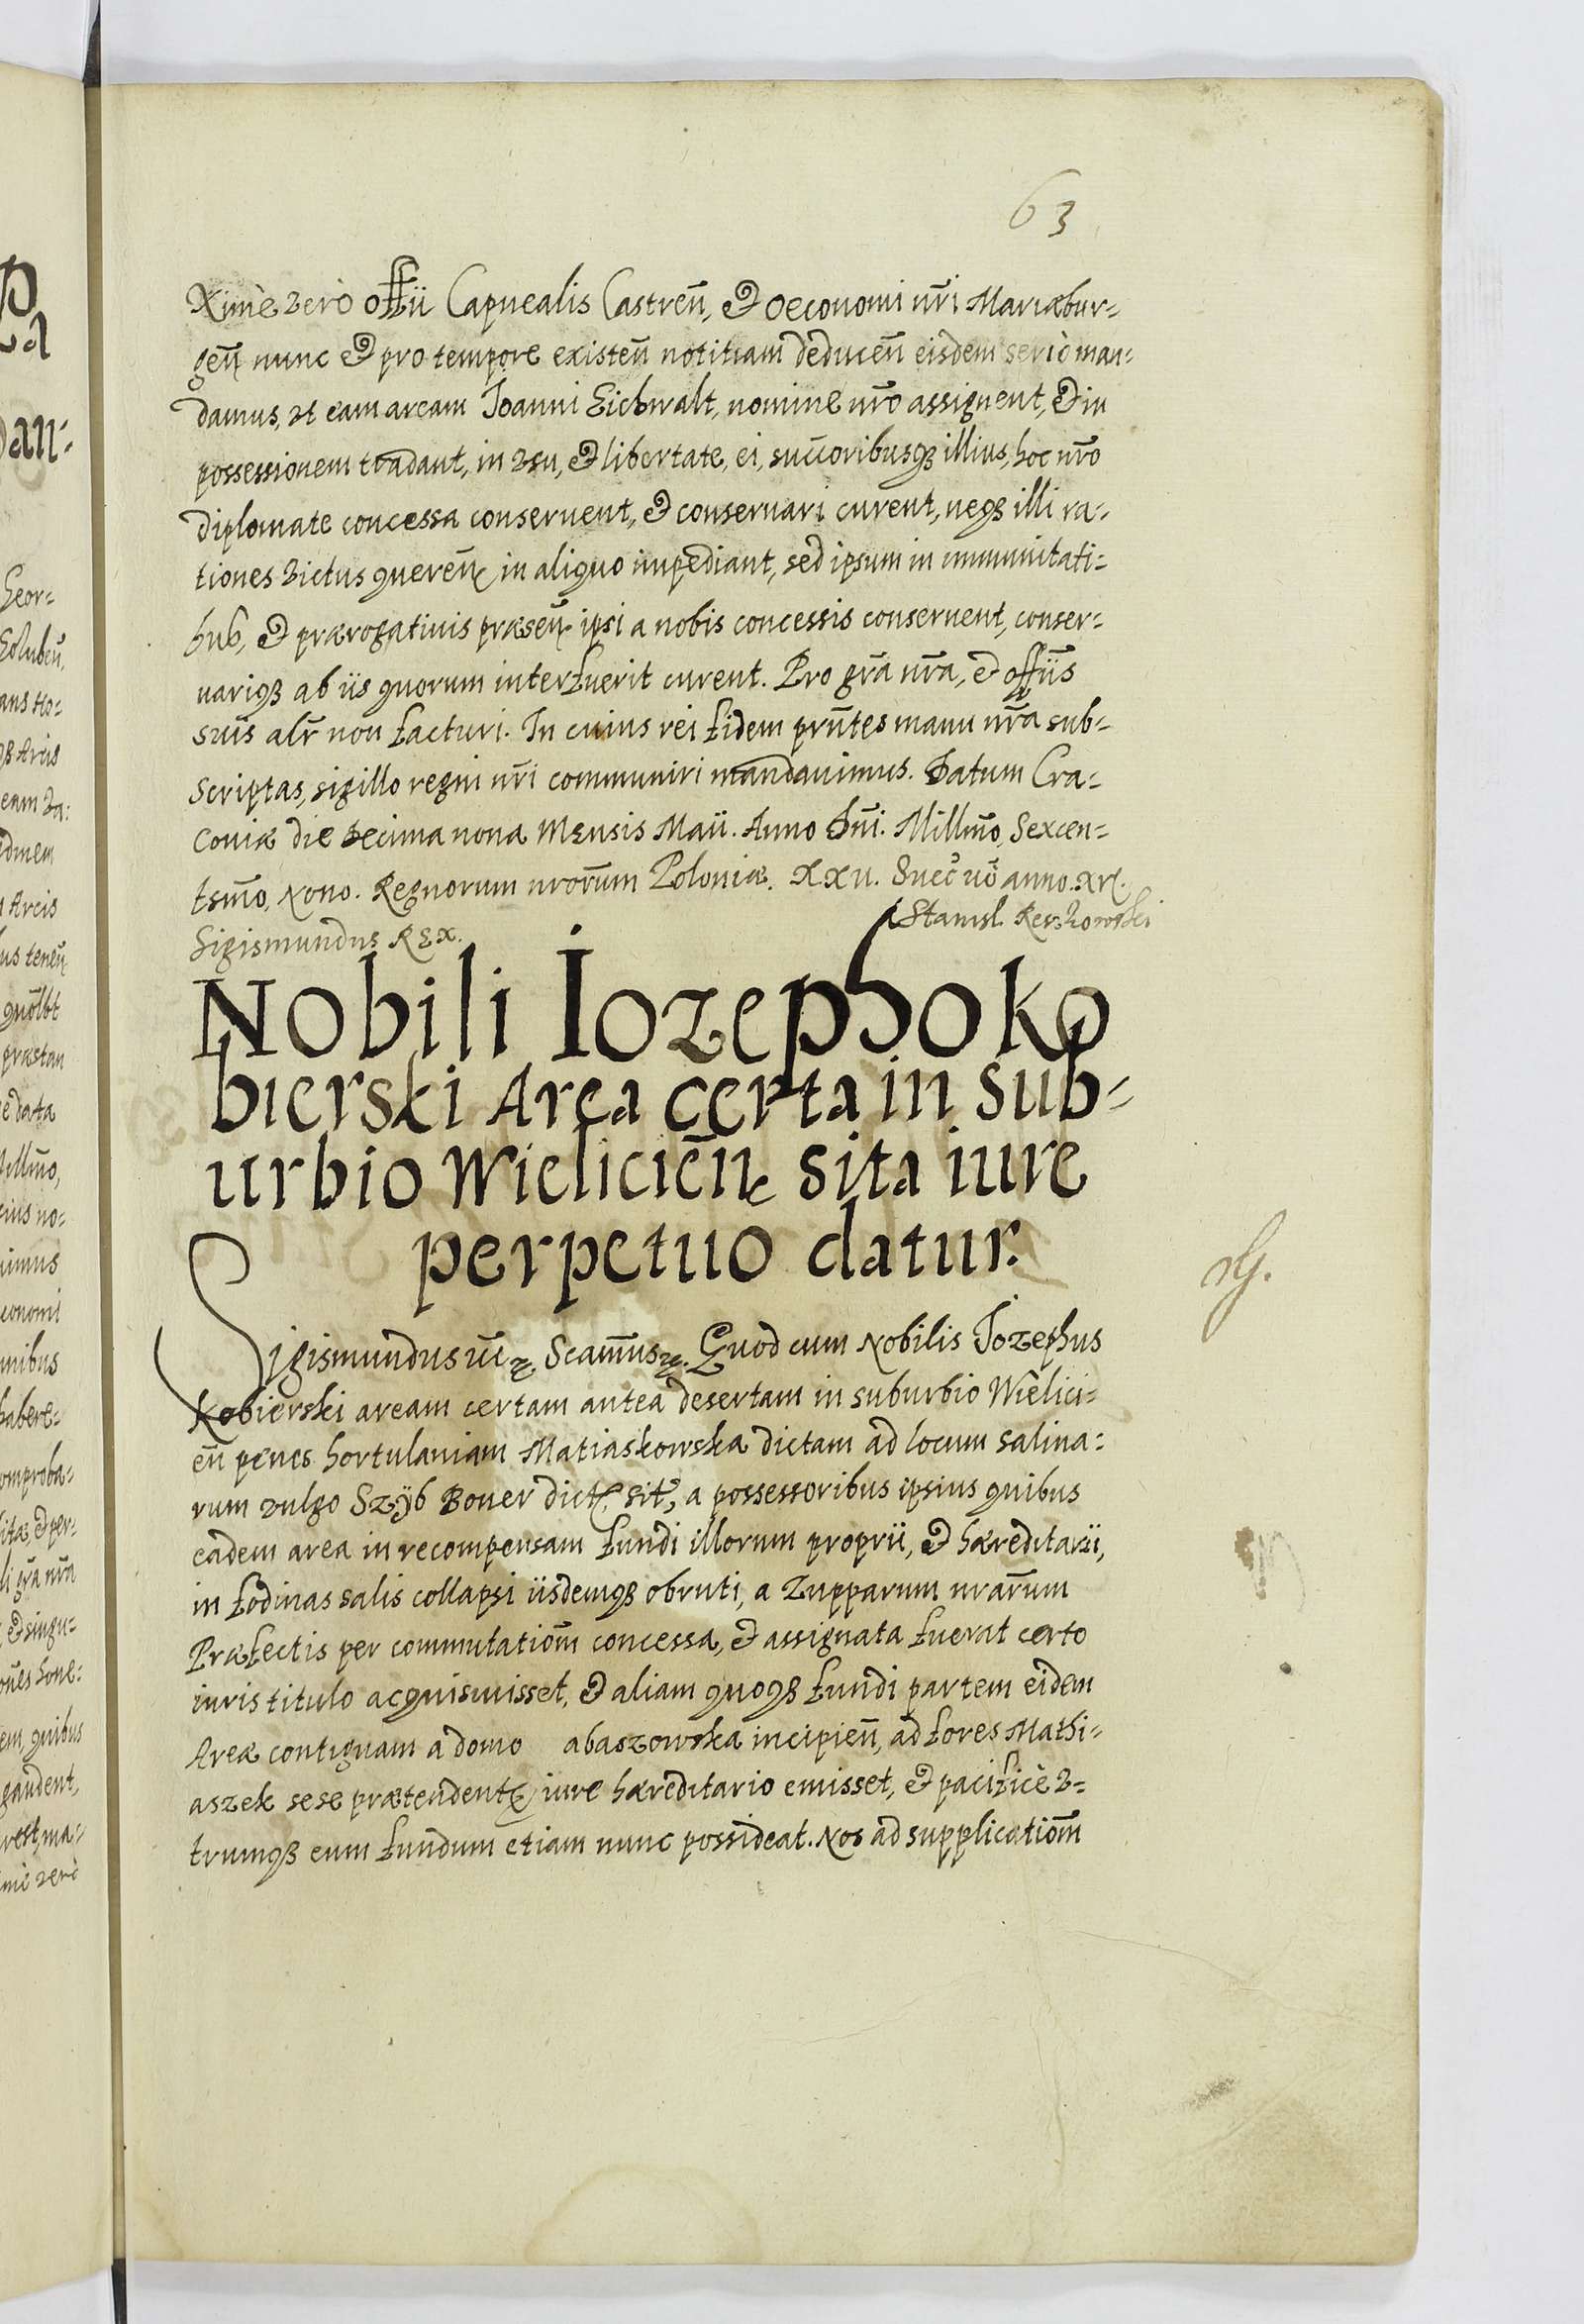 63
ximè verò offii Capnealis Castreñ, & oeconomi nr̃i Mariæbur-
geñ nunc & pro tempore existeñ notitiam deduceñ eisdem seriò man-
damus, vt eam aream Joanni Eichwalt, nomine nr̃o assignent, & in
possessionem tradant, in vsu, & libertate, ei, succoribusqȝ illius, hoc nr̃o
diplomate concessa conseruent, & conseruari curent, neqȝ illi ra-
tiones victus quereñ in aliquo impediant, sed ipsum in immunitati-
bus, & prærogatiuis præseñ ipsi a nobis concessis conseruent, conser-
uariqȝ ab iis quorum interfuerit curent. Pro gr̃a nr̃a, & offiis
suis alr̃ non facturi. In cuius rei fidem pr̃ntes manu nr̃a sub-
scriptas, sigillo regni nr̃i communiri mandauimus. Datum Cra-
couiæ die decima nona Mensis Maii. Anno Dñi. Millm̃o, Sexcen-
tsm̃o, Nono. Regnorum nror̃um Poloniæ. XXII. Suec̃ uõ anno. XVI.
Sigismundus REX.
Stamsl.
Nobili Iozepho Ko
bierski Area certa in sub-
urbio Wielicieñ sita iure
perpetuo datur.
Sigismundus etc. Quod cum Nobilis Jozephus
Kobierski aream certam antea desertam in suburbio Wielici-
eñ penes hortulaniam Matiaskowska dictam ad locum salina-
rum vulgo Szÿb Boner dict. sit, a possessoribus ipsius quibus
eadem area in recompensam fundi illorum proprii, & hæreditarii,
in fodinas salis collapsi iisdemqȝ obruti, a Zupparum nrar̃um
Præfectis per commutatiom̃ concessa, & assignata fuerat certo
iuris titulo acquisiuisset, & aliam quoqȝ fundi partem eidem
Areæ contiguam a domo abaszowska incipieñ, ad fores Mathi-
aszek sese prætendent iure hæreditario emisset, & pacificè v-
trumqȝ eum fundum etiam nunc possideat. Nos ad supplicatiom̃